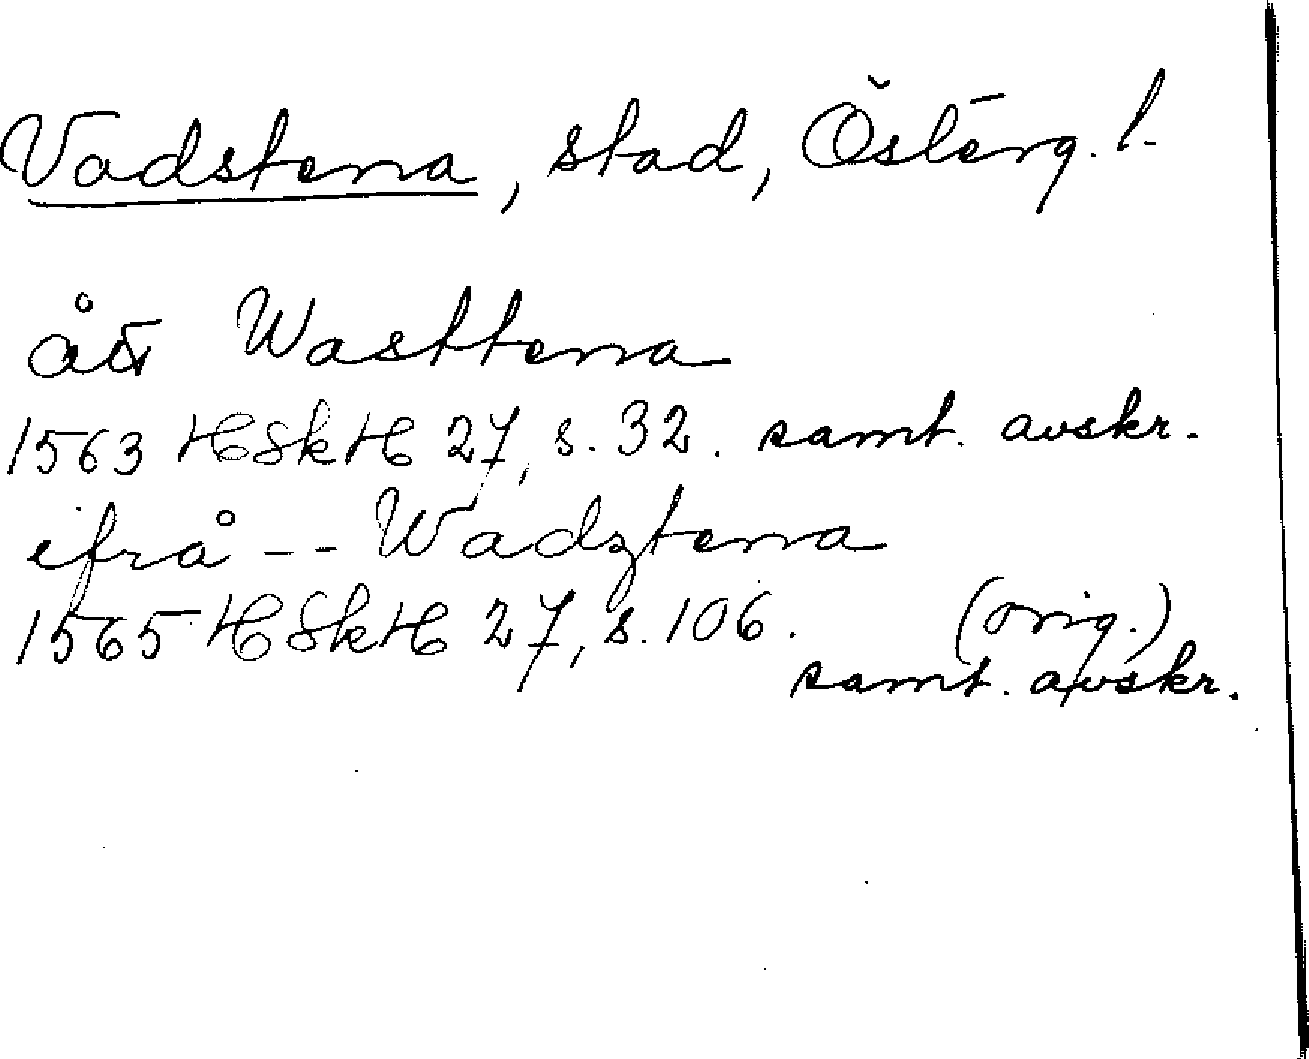 Vadstena, stad, Österg. l.
åt Wasttena
1563 HSkH 27, s. 32. samt. avskr.
ifrå -- Wadztena
1565 HSkH 27, s. 106. (orig.)
samt. avskr.